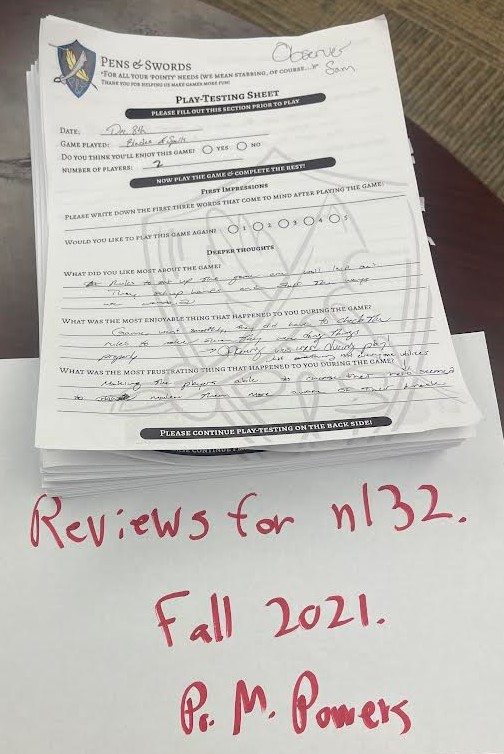 PENS & SWORDS
"FOR ALL YOUR 'POINTY' NEEDS (WE MEAN STABBING, OF COURSE...)"
THANK YOU FOR HELPING US MAKE GAMES MORE FUN!
Observer
Sam
PLAY-TESTING SHEET
PLEASE FILL OUT THIS SECTION PRIOR TO PLAY
DATE: Dec 8th
GAME PLAYED:
DO YOU THINK YOU'LL ENJOY THIS GAME? YES NO
NUMBER OF PLAYERS: 2
NOW PLAY THE GAME & COMPLETE THE REST!
FIRST IMPRESSIONS
PLEASE WRITE DOWN THE FIRST THREE WORDS THAT COME TO MIND AFTER PLAYING THE GAME:
WOULD YOU LIKE TO PLAY THIS GAME AGAIN? 1 2 3 4 5
DEEPER THOUGHTS
WHAT DID YOU LIKE MOST ABOUT THE GAME?
Rules to set up the game are well laid out
They
WHAT WAS THE MOST ENJOYABLE THING THAT HAPPENED TO YOU DURING THE GAME?
Game went smoothly, they did have to check the
rules to make sure they were doing things
properly
WHAT WAS THE MOST FRUSTRATING THING THAT HAPPENED TO YOU DURING THE GAME?
Making the players able to
to make them more aware of their
PLEASE CONTINUE PLAY-TESTING ON THE BACK SIDE!
Reviews for n132.
Fall 2021.
Pr. M. Powers